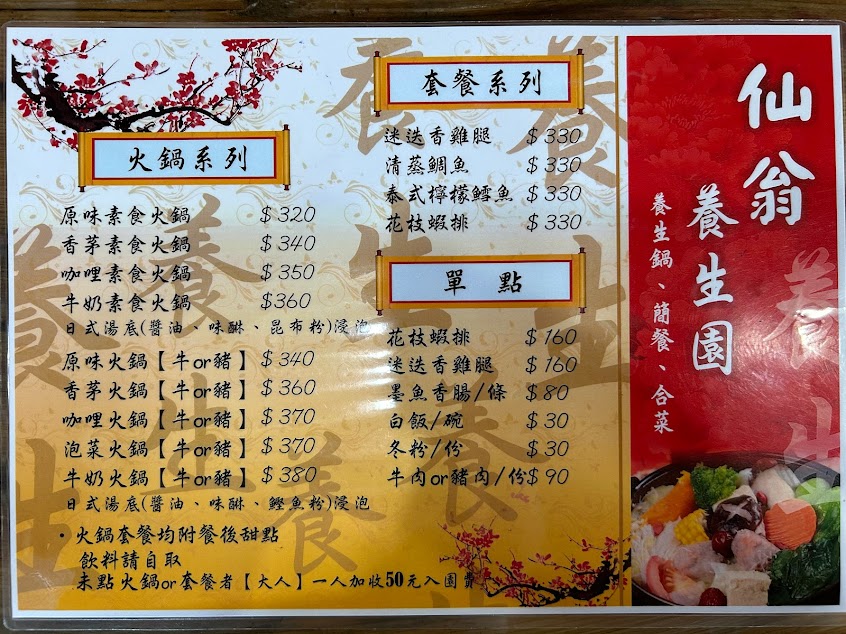 火鍋系列
原味素食火鍋 $320
香茅素食火鍋 $340
咖哩素食火鍋 $350
牛奶素食火鍋 $360
日式湯底(醬油、味醂、昆布粉)浸泡
原味火鍋【牛or豬】 $340
香茅火鍋【牛or豬】 $360
咖哩火鍋【牛or豬】 $370
泡菜火鍋【牛or豬】 $370
牛奶火鍋【牛or豬】 $380
日式湯底(醬油、味醂、鰹魚粉)浸泡
·火鍋套餐均附餐後甜點
飲料請自取
未點火鍋or套餐者【大人】一人加收50元入園費
套餐系列
迷迭香雞腿 $330
清蒸鯛魚 $330
泰式檸檬鱈魚 $330
花枝蝦排 $330
單點
花枝蝦排 $160
迷迭香雞腿 $160
墨魚香腸/條 $80
白飯/碗 $30
冬粉/份 $30
牛肉or豬肉/份$90
仙翁
養生園
養生鍋、簡餐、合菜
養生
養生
養生
養生
養生